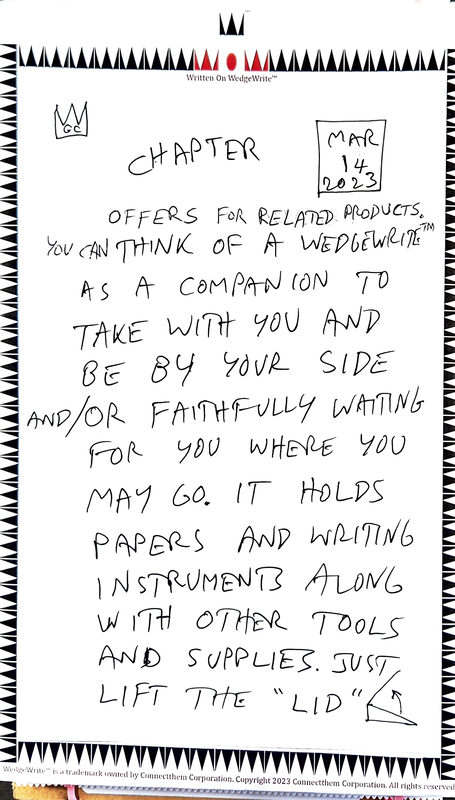 Written On WedgeWrite™
GC
CHAPTER
MAR
14
2023
OFFERS FOR RELATED PRODUCTS.
YOU CAN THINK OF A WEDGEWRITE™
AS A COMPANION TO
TAKE WITH YOU AND
BE BY YOUR SIDE
AND/OR FAITHFULLY WAITING
FOR YOU WHERE YOU
MAY GO. IT HOLDS
PAPERS AND WRITING
INSTRUMENTS ALONG
WITH OTHER TOOLS
AND SUPPLIES. JUST
LIFT THE "LID"
WedgeWrite™ is a trademark owned by Connectthem Corporation. Copyright 2023 Connectthem Corporation. All rights reserved